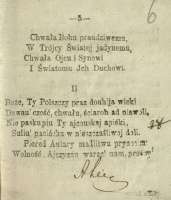 — 3 —
6
Chwała Bohu praudziwemu,
W Trójcy Światej jadynemu,
Chwała Ojcu i Synowi
I Światomu Jeh Duchowi.
II
Boże, Ty Polszczy praz douhija wieki
Dawau' czość, chwału, ściaroh ad niawoli,
Nie paskupiu Ty ajcouskaj apieki,
Suliu' pacióchu w nieszczaśliwoj doli.
Pierad Autary malitwu prynosim'
Wolność, Ajczyznu warnı' nam, prosim'